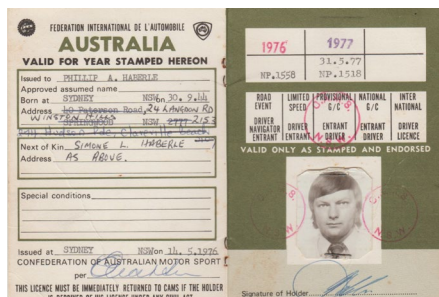 FEDERATION INTERNATIONAL DE L'AUTOMOBILE
AUSTRALIA
VALID FOR YEAR STAMPED HEREON
Issued to PHILLIP A. HABERLE
Approved assumed name
Born at SYDNEY NSW on 30.9.44
Address 10 Paterson Road, 24 LANGDON RD
WINSTON HILLS
SPRINGWOOD NSW 2777 2153
Hudson Pde, Clareville Beach
Next of Kin SIMONE L. HABERLE
Address AS ABOVE.
Special conditions
Issued at SYDNEY NSW on 14.5.1976
CONFEDERATION OF AUSTRALIAN MOTOR SPORT
per
THIS LICENCE MUST BE IMMEDIATELY RETURNED TO CAMS IF THE HOLDER
1976 1977
31.5.77
NP.1558 NP.1518
ROAD EVENT LIMITED SPEED PROVISIONAL G/C NATIONAL G/C INTER NATIONAL
DRIVER NAVIGATOR ENTRANT DRIVER ENTRANT ENTRANT DRIVER ENTRANT DRIVER DRIVER LICENCE
VALID ONLY AS STAMPED AND ENDORSED
Signature of Holder